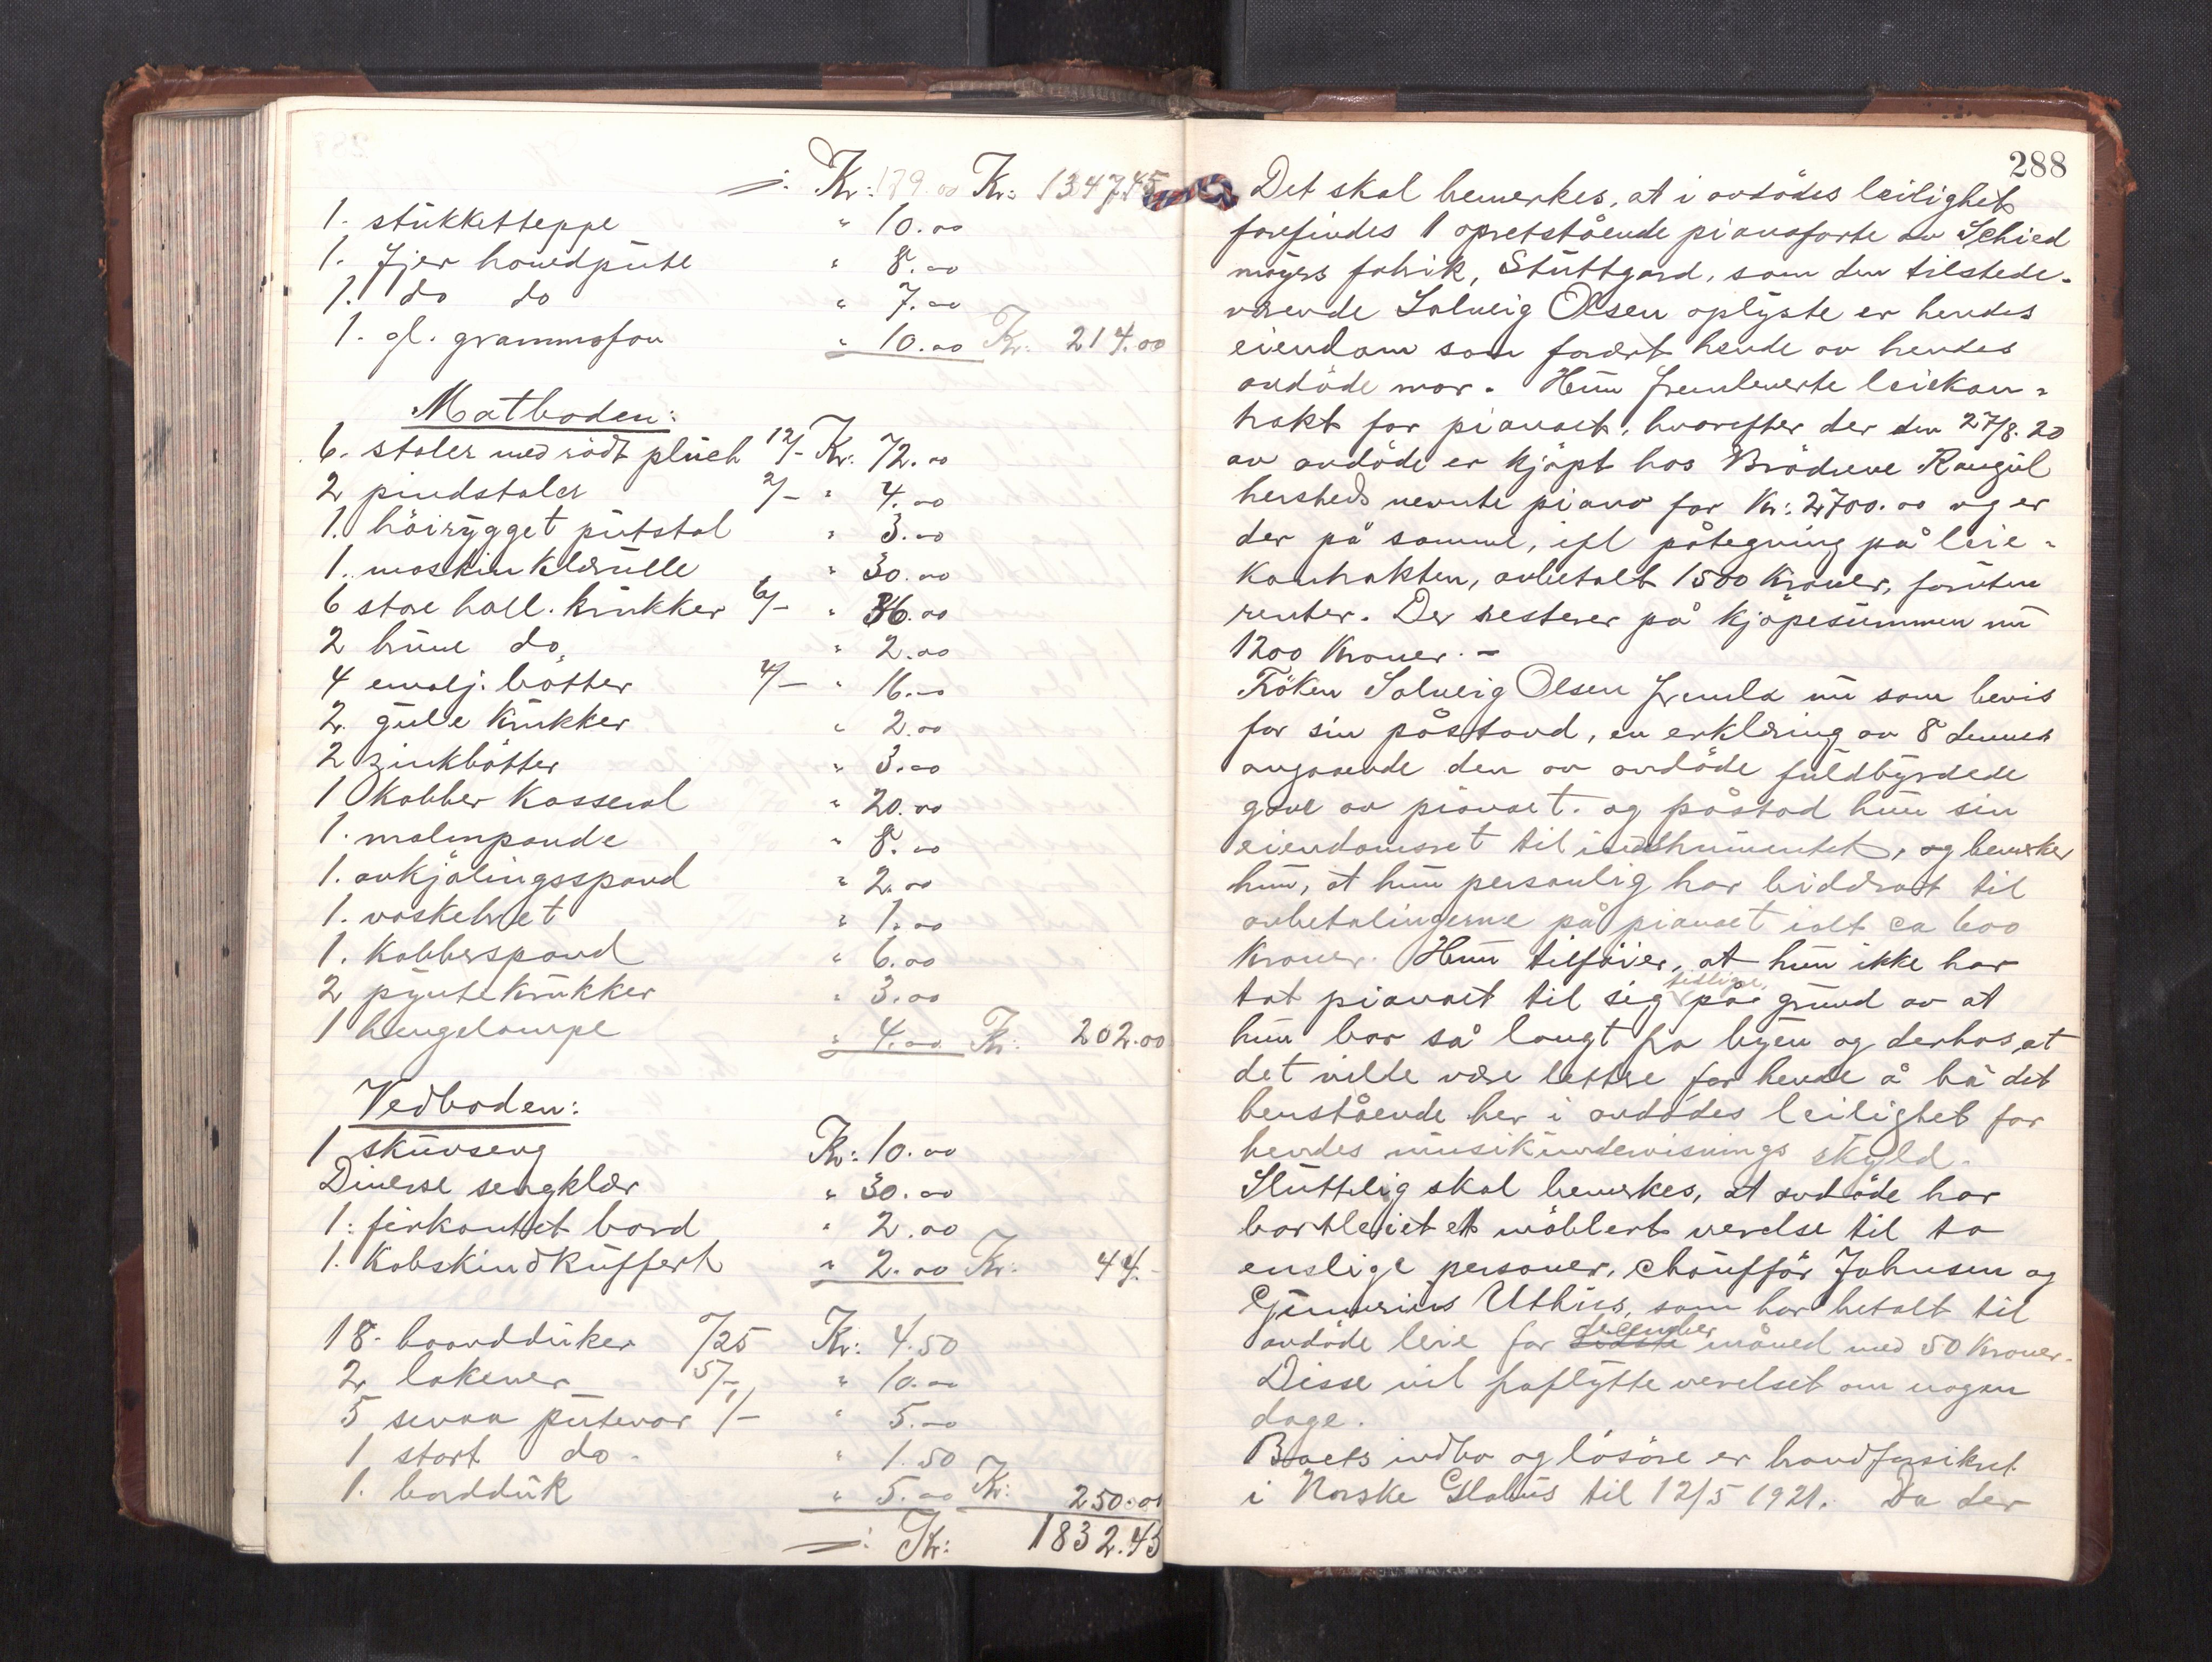 =: Kr: 179.00 Kr: 1347.45
1. stukketteppe " 10.00
1. Fjer hovedpute " 8.00
1. do do " 7.00
1. gl. grammofon " 10.00 Kr: 214.00
Matboden:
6. stoler med rødt plüch 12/- Kr: 72.00
2 pindstoler 2/- " 4.00
1. höirygget putstol " 3.00
1. maskin klærulle " 30.00
6 store holl. krukker 6/- " 36.00
2 brune do. " 2.00
4 emalj. bötter 4/- " 16.00
2. gule krukker " 2.00
2 zinkbötter " 3.00
1 Kobber Kasserol " 20.00
1. malmpande " 8.00
1. avkjölingsspand " 2.00
1. vaskebret " 1.00
1. Kobberspand " 6.00
2 pyntekrukker " 3.00
1 hengelampe " 4.00 Kr: 202.00
Vedboden:
1 skuvseng Kr: 10.00
Diverse sengklær " 30.00
1: firkantet bord " 2.00
1. Kobskindkuffert " 2.00 Kr: 44.-
18. boordduker -/25 Kr: 4.50
2. lakener 5/- " 10.00
5 smaa putevar 1/- " 5.00
1 stort do. " 1.50
1. bordduk " 5.00 Kr: 250.00
=: Kr: 1832.45
288
Det skal bemerkes, at i avdödes leilighet
forefindes 1 opretstående pianoforte av Schied
mayers fabrik, Stuttgard, som den tilstede-
værende Solveig Olsen oplyste er hendes
eiendom som foræret hende av hendes
avdöde mor. Hun fremleverte leiekon-
trakt for pianoet, hvorefter der den 27/8. 20
av avdöde er kjöpt hos Brödrene Rangul
hersteds nevnte piano for Kr: 2700.00 og er
der på samme, ifl påtegning på leie-
kontrakten, avbetalt 1500 Kroner, foruten
renter. Der resterer på kjöpesummen nu
1200 Kroner. -
Fröken Solveig Olsen fremla nu som bevis
for sin påstand, en erklæring av 8 dennes
angaaende den av avdöde fuldbyrdede
gave av pianoet. og påstod hun sin
eiendomsret til indstrumentet, og bemerker
hun, at hun personlig har biddrat til
avbetalingerne på pianoet ialt ca 600
Kroner. Hun tilföier, at hun ikke har
tidligere
tat pianoet til sig på grund av at
hun bor så langt fra byen og derhos, at
det vilde være lettere for hende å ha det
henstående her i avdödes leilighet for
hendes musikundervisnings skyld.
Sluttelig skal bemerkes, at avdöde har
bortleiet et möblert værelse til to
enslige personer, chaufför Johnsen og
Gunnerius Uthus, som har betalt til
december
avdöde leie for sidste måned med 50 Kroner.
Disse vil fraflytte værelset om nogen
dage.
Boets indbo og lösöre er brandforsikret
i Norske Globus til 12/5 1921. Da der